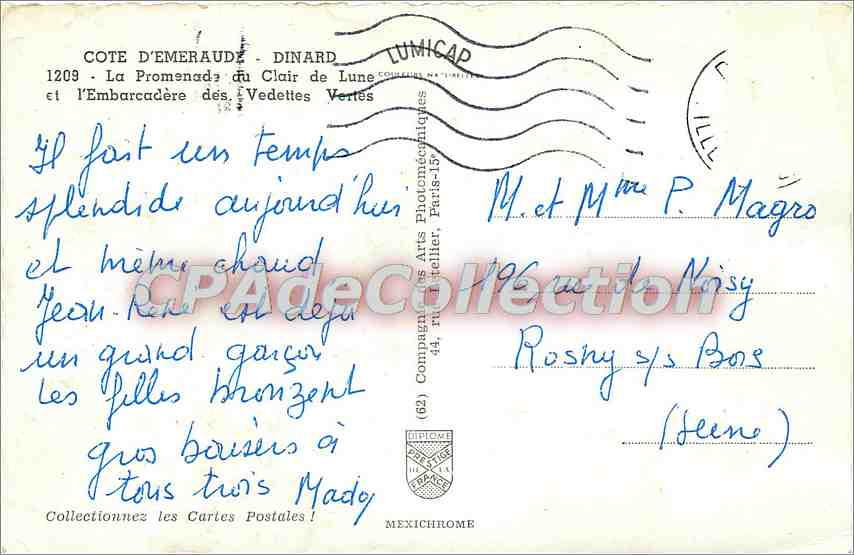 COTE D'EMERAUDE - DINARD
1209 - La Promenade du Clair de Lune
et l'Embarcadère des Vedettes Vertes
LUMICAP
COULEURS NATURELLES
ILL
Il fait un temps
splendide aujourd'hui
et même chaud
Jean-René est déjà
un grand garçon
Les filles bronzent
gros baisers à
tous trois Mady
M. et Mme P. Magro
196 rue de Noisy
Rosny s/s Bois
(Seine)
CPAdeCollection
(62) Compagnie des Arts Photomécaniques
44, rue Letellier, Paris-15e
DIPLOME
PRESTIGE
DE LA
FRANCE
Collectionnez les Cartes Postales !
MEXICHROME